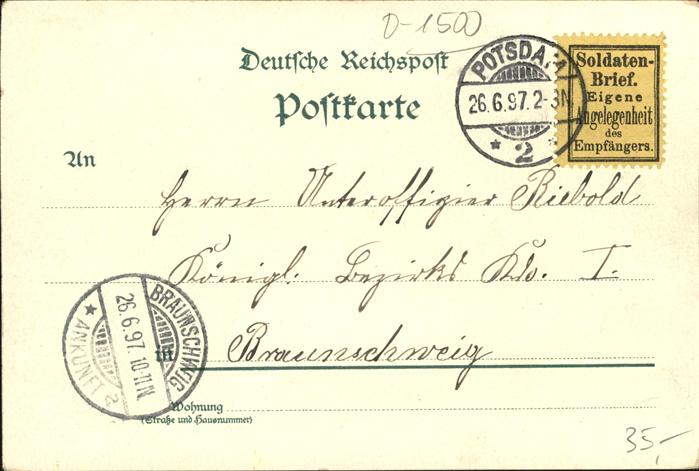 D-1500
Deutsche Reichspost
Postkarte
POTSDAM
26.6.97.2-3N.
* 2 *
Soldaten-
Brief.
Eigene
Angelegenheit
des
Empfängers.
An
Herrn Unteroffizier Riebold
Königl. Bezirks Kdo. I.
in Braunschweig
BRAUNSCHWEIG
26.6.97.10-11N.
* ANKUNFT 2
Wohnung
(Straße und Hausnummer)
35,-